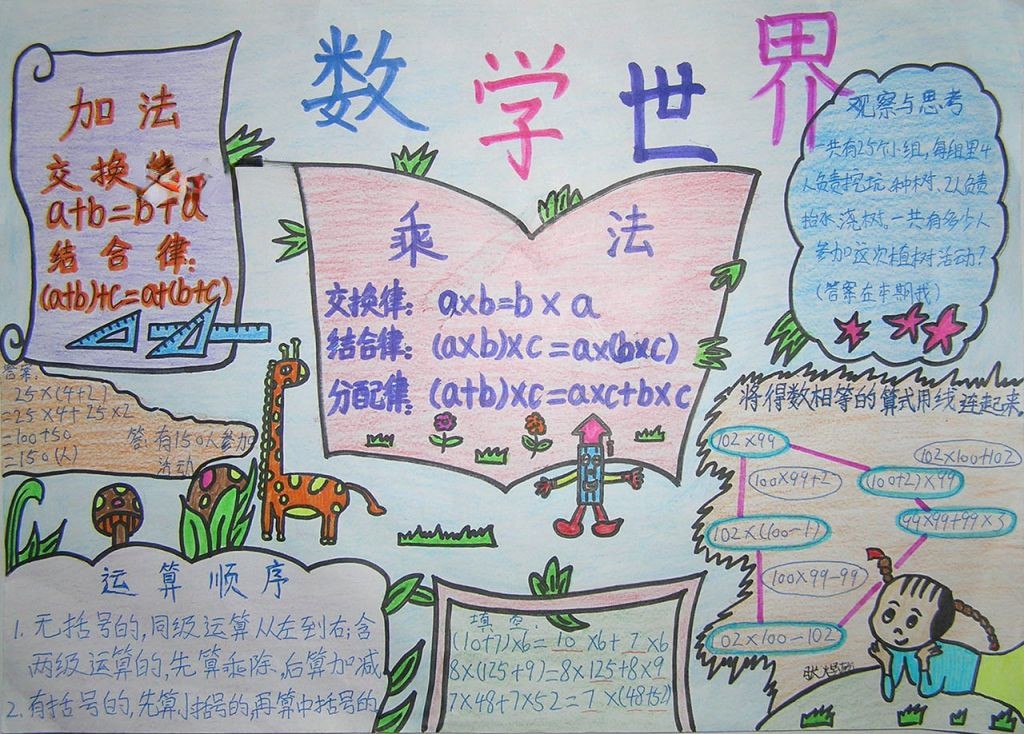 数学世界
加法
交换
a+b=b+a
结合律:
(a+b)+c=a+(b+c)
乘法
交换律: a×b=b×a
结合律: (a×b)×c=a×(b×c)
分配律: (a+b)×c=a×c+b×c
观察与思考
一共有25个小组,每组里4
人负责挖坑、种树、2人负责
抬水、浇树。一共有多少人
参加这次植树活动?
(答案在本期找)
答案:
25×(4+2)
=25×4+25×2
=100+50
=150(人)
答:有150人参加
活动
将得数相等的算式用线连起来。
102×99
102×100+102
100×99+2
(100+2)×99
102×(100-1)
99×99+99×3
100×99-99
102×100-102
运算顺序
1. 无括号的,同级运算从左到右;含
两级运算的,先算乘除,后算加减
2. 有括号的,先算小括号的,再算中括号的
填空
(10+7)×6=10×6+7×6
8×(125+9)=8×125+8×9
7×48+7×52=7×(48+52)